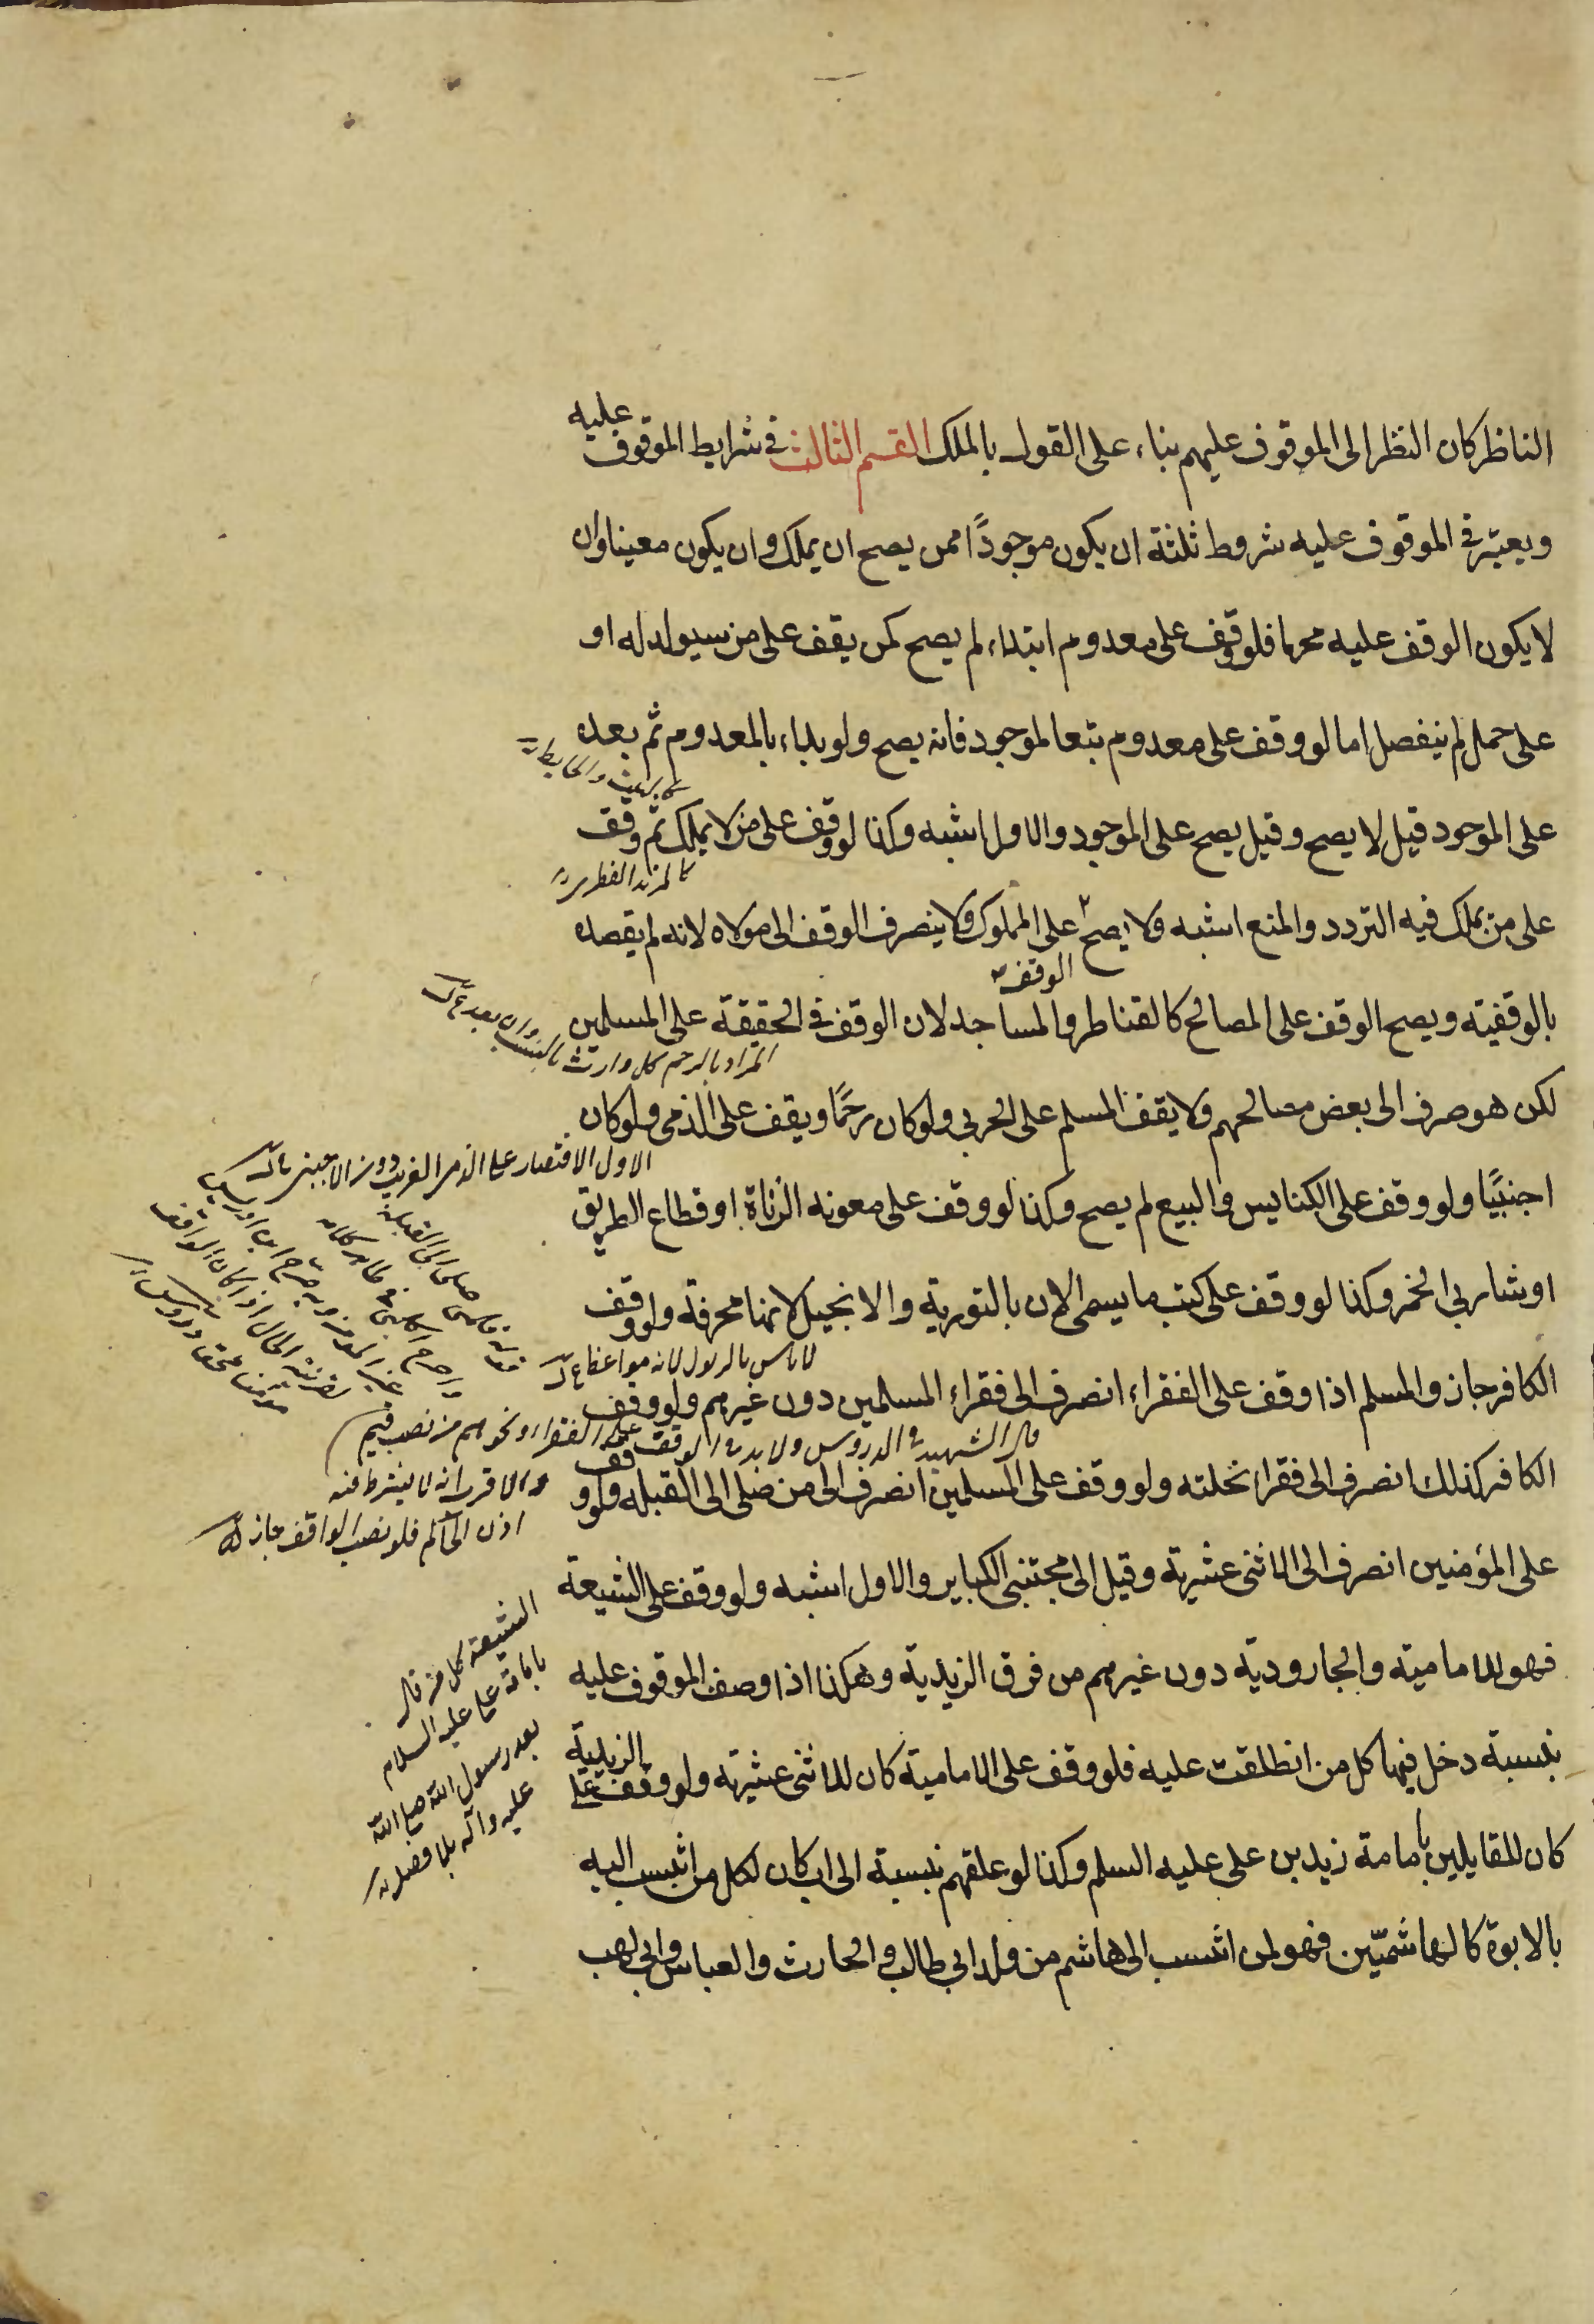 الناظر كان النظر الى الموقوف عليهم بناء على القول بالملك القسم الثالث في شرايط الموقوف عليه
ويعتبر في الموقوف عليه شروط ثلثة ان يكون موجودًا ممن يصح ان يملك وان يكون معينا وان
لا يكون الوقف عليه محرما فلو وقف على معدوم ابتداء لم يصح كمن يقف على من سيولد له او
على حمل لم ينفصل اما لو وقف على معدوم تبعا لموجود فانه يصح ولو بداء بالمعدوم ثم بعده
على الموجود قيل لا يصح وقيل يصح على الموجود والاول اشبه وكذا لو وقف على من لا يملك ثم وقف
على من يملك فيه التردد والمنع اشبه ولا يصح على المملوك ولا ينصرف الوقف الى مولاه لانه لم يقصده
الوقف
بالوقفية ويصح الوقف على المصالح كالقناطر والمساجد لان الوقف في الحقيقة على المسلمين
المراد بالرحم كل وارث بالنسب وان بعد
لكن هو صرف الى بعض مصالحهم ولا يقف المسلم على الحربي ولو كان رحمًا ويقف على الذمى ولو كان
الاول الاقتصار على الذمى القريب دون الاجنبى
اجنبيًا ولو وقف على الكنايس والبيع لم يصح وكذا لو وقف على معونه الزناة او قطاع الطريق
او شاربي الخمر وكذا لو وقف على كتب ما يسمى الان بالتورية والانجيل لانها محرفة ولو وقف
الكافر جاز والمسلم اذا وقف على الفقراء انصرف الى فقراء المسلمين دون غيرهم ولو وقف
قال الشهيد في الدروس ولا بد في الوقف على الفقراء ونحوهم من نصب قيم
الكافر كذلك انصرف الى فقراء نحلته ولو وقف على المسلمين انصرف الى من صلى الى القبله ولو وقف
والاقرب انه لا يشترط فيه
اذن الحاكم فلو نصب الواقف جاز
على المؤمنين انصرف الى الاثنى عشرية وقيل الى مجتنبى الكباير والاول اشبه ولو وقف على الشيعة
فهو للامامية والجارودية دون غيرهم من فرق الزيدية وهكذا اذا وصف الموقوف عليه
بنسبة دخل فيها كل من انطلقت عليه فلو وقف على الامامية كان للاثنى عشرية ولو وقف على الزيدية
كان للقايلين بامامة زيد بن على عليه السلم وكذا لو علقهم بنسبة الى اب كان لكل من انتسب اليه
بالابوة كالهاشميّين فهو لمن انتسب الى هاشم من ولد ابي طالب والحارث والعباس وابي لهب
الشيعة كل من قال
بامامة على عليه السلام
بعد رسول الله صلى الله
عليه وآله بلا فصل